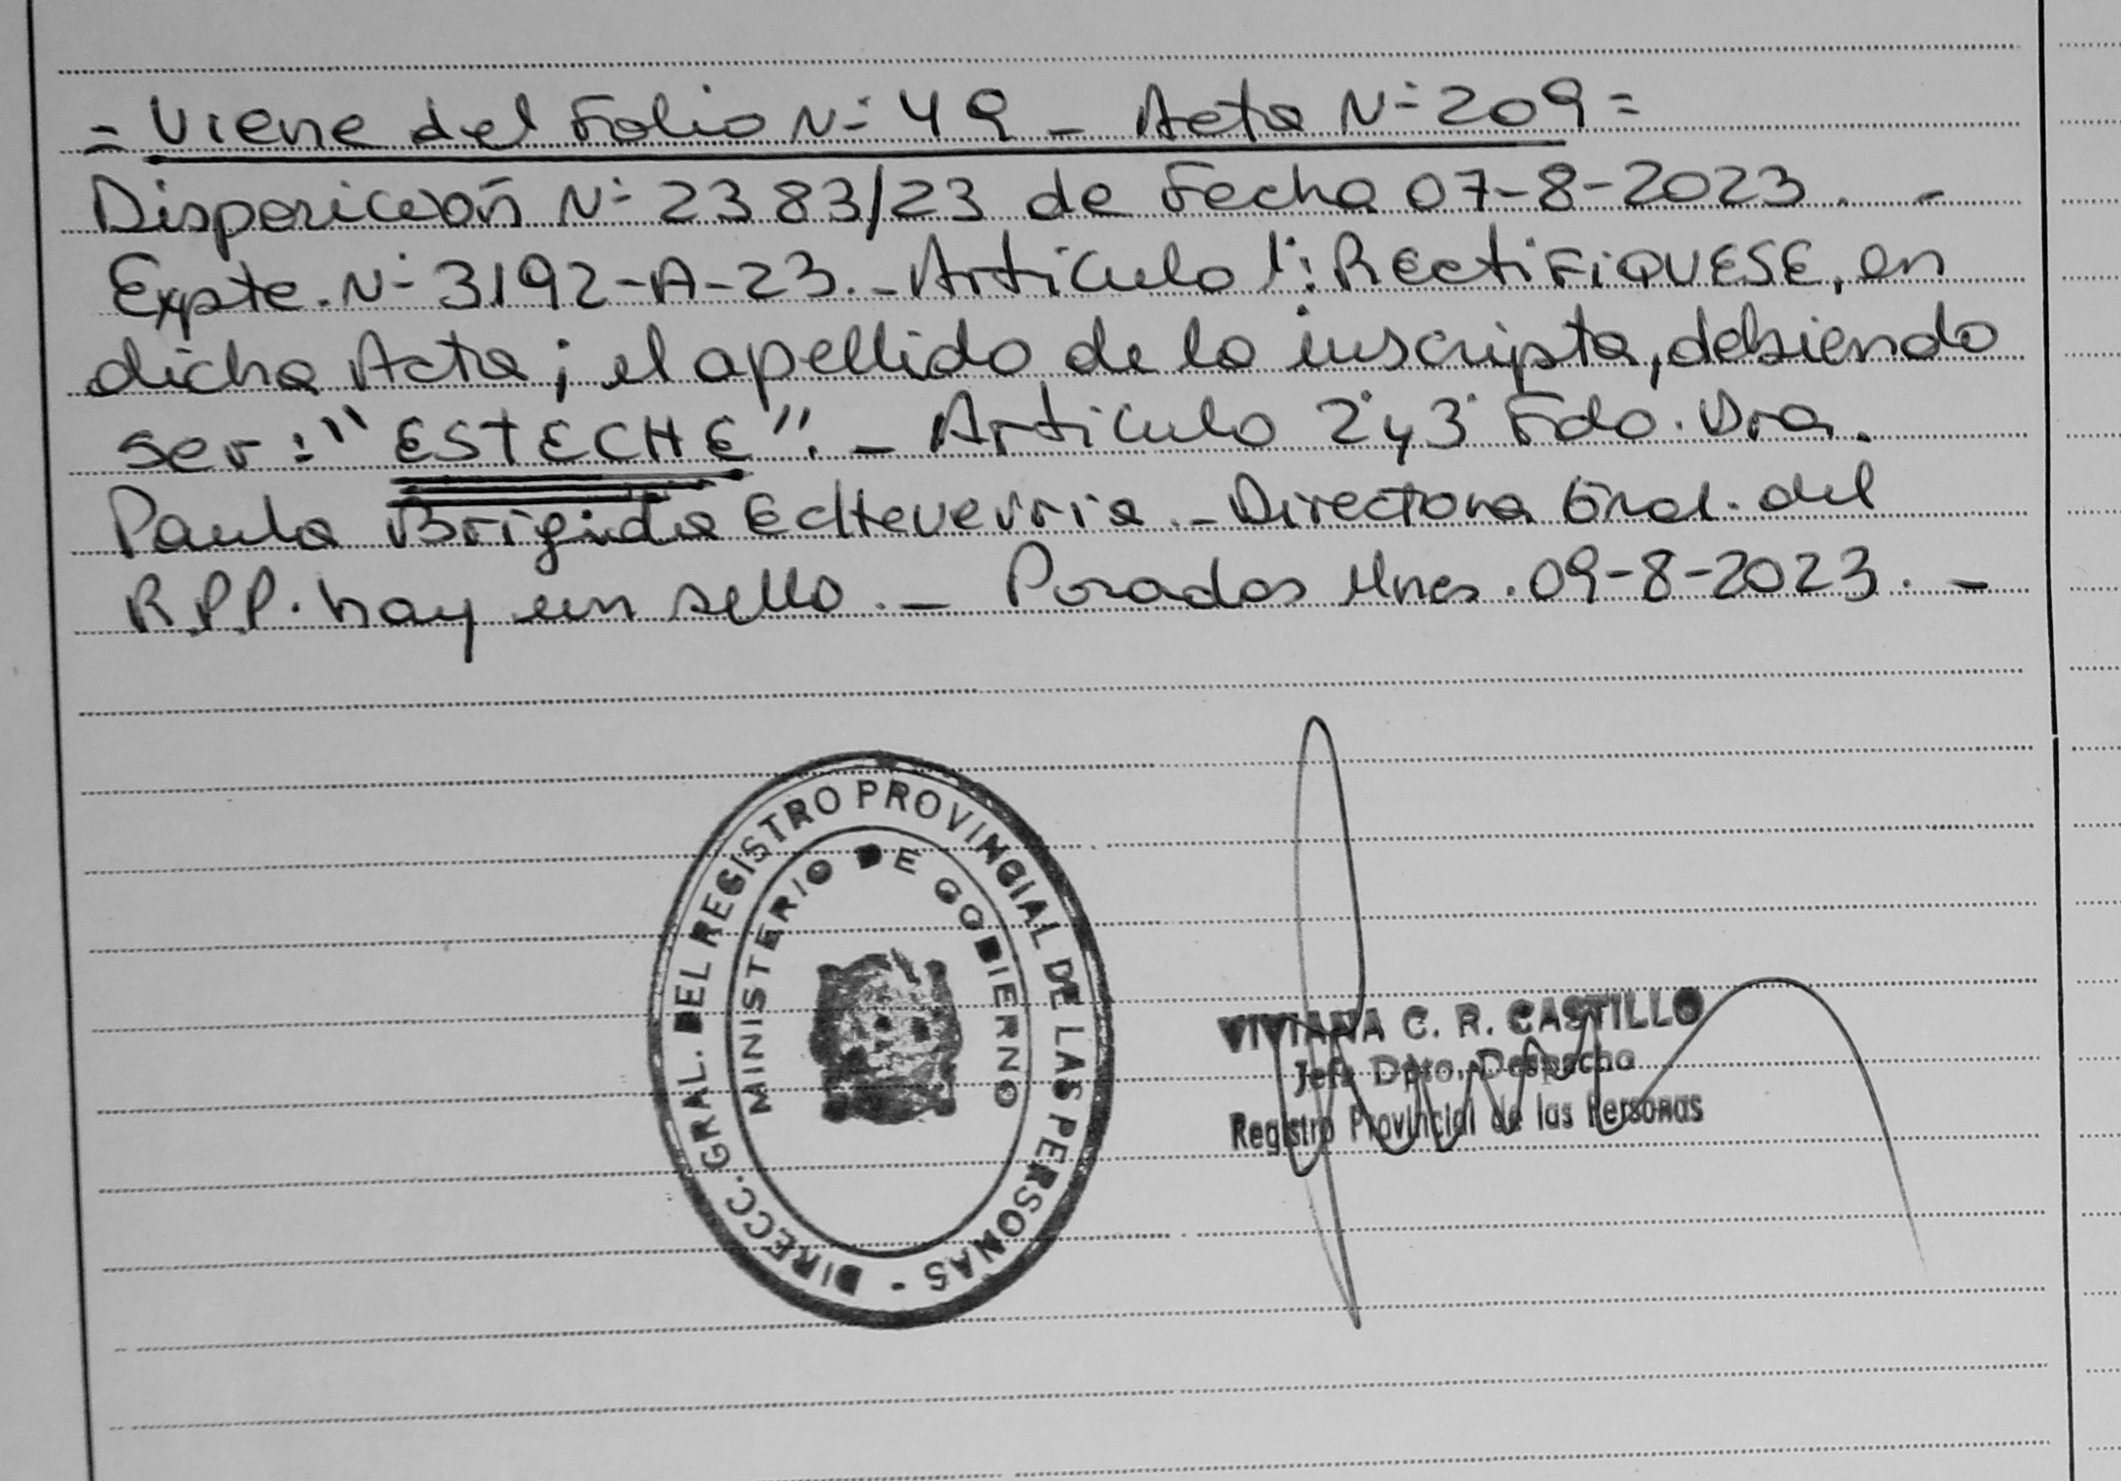 = Viene del Folio N° 49 - Acta N° 209 =
Disposición N° 2383/23 de Fecha 07-8-2023. -
Expte. N° 3192-A-23. - Artículo 1°: RECTIFIQUESE, en
dicha Acta; el apellido de la inscripta, debiendo
ser: "ESTECHE". - Artículo 2° y 3° Fdo. Dra.
Paula Brigida Echeverria. - Directora Gral. del
R.P.P. hay un sello. - Posadas Mnes. 09-8-2023. -
DIRECC. GRAL. DEL REGISTRO PROVINCIAL DE LAS PERSONAS -
MINISTERIO DE GOBIERNO
VIVIANA C. R. CASTILLO
Jefe Dpto. Despacho
Registro Provincial de las Personas